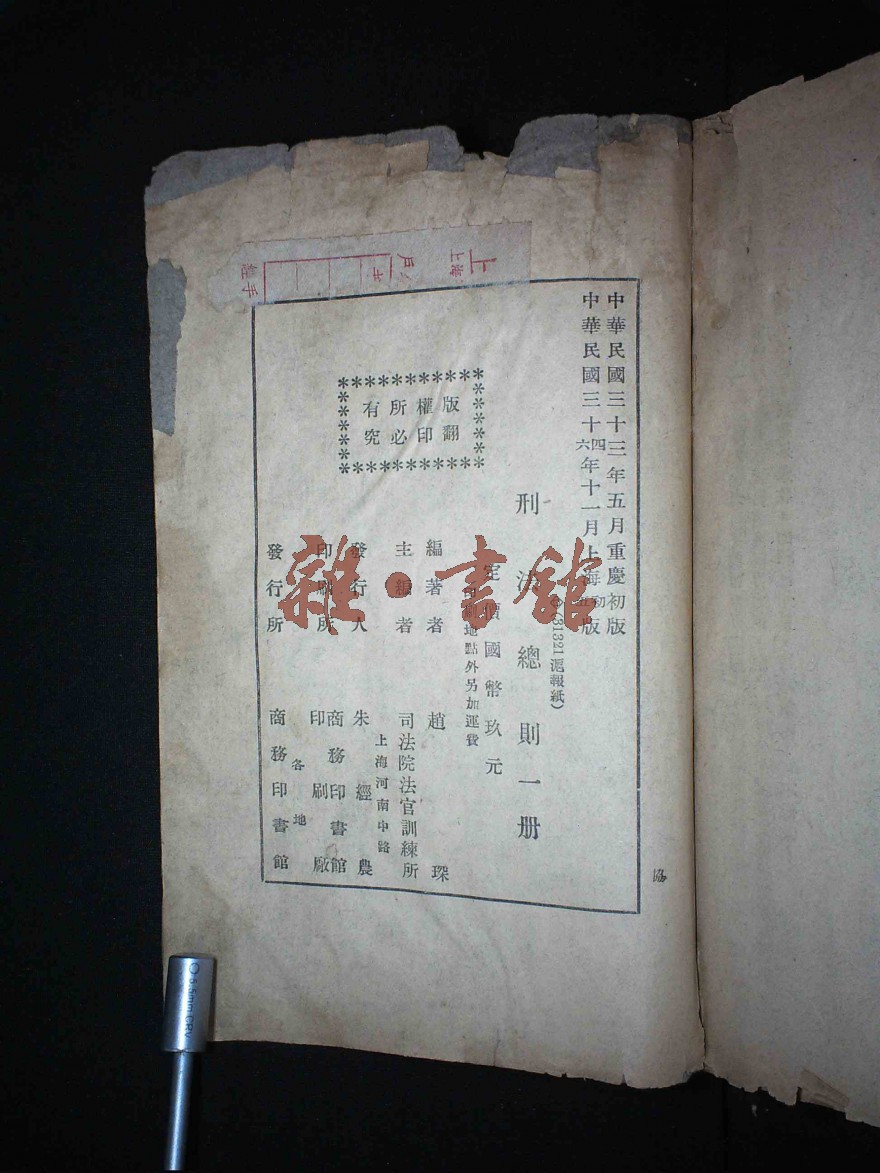 中華民國三十三年五月重慶初版
中華民國三十四年十一月上海初版
六
刑法總則一册
31321滬報紙）
定價國幣玖元
地點外另加運費
版權所有
翻印必究
編著者 趙琛
主編者 司法院法官訓練所
上海河南中路
發行人 朱經農
印刷所 商務印書館
印刷廠
各地
發行所 商務印書館
協
雜·書館
上
上海
戶
經手
3.5mm CRV